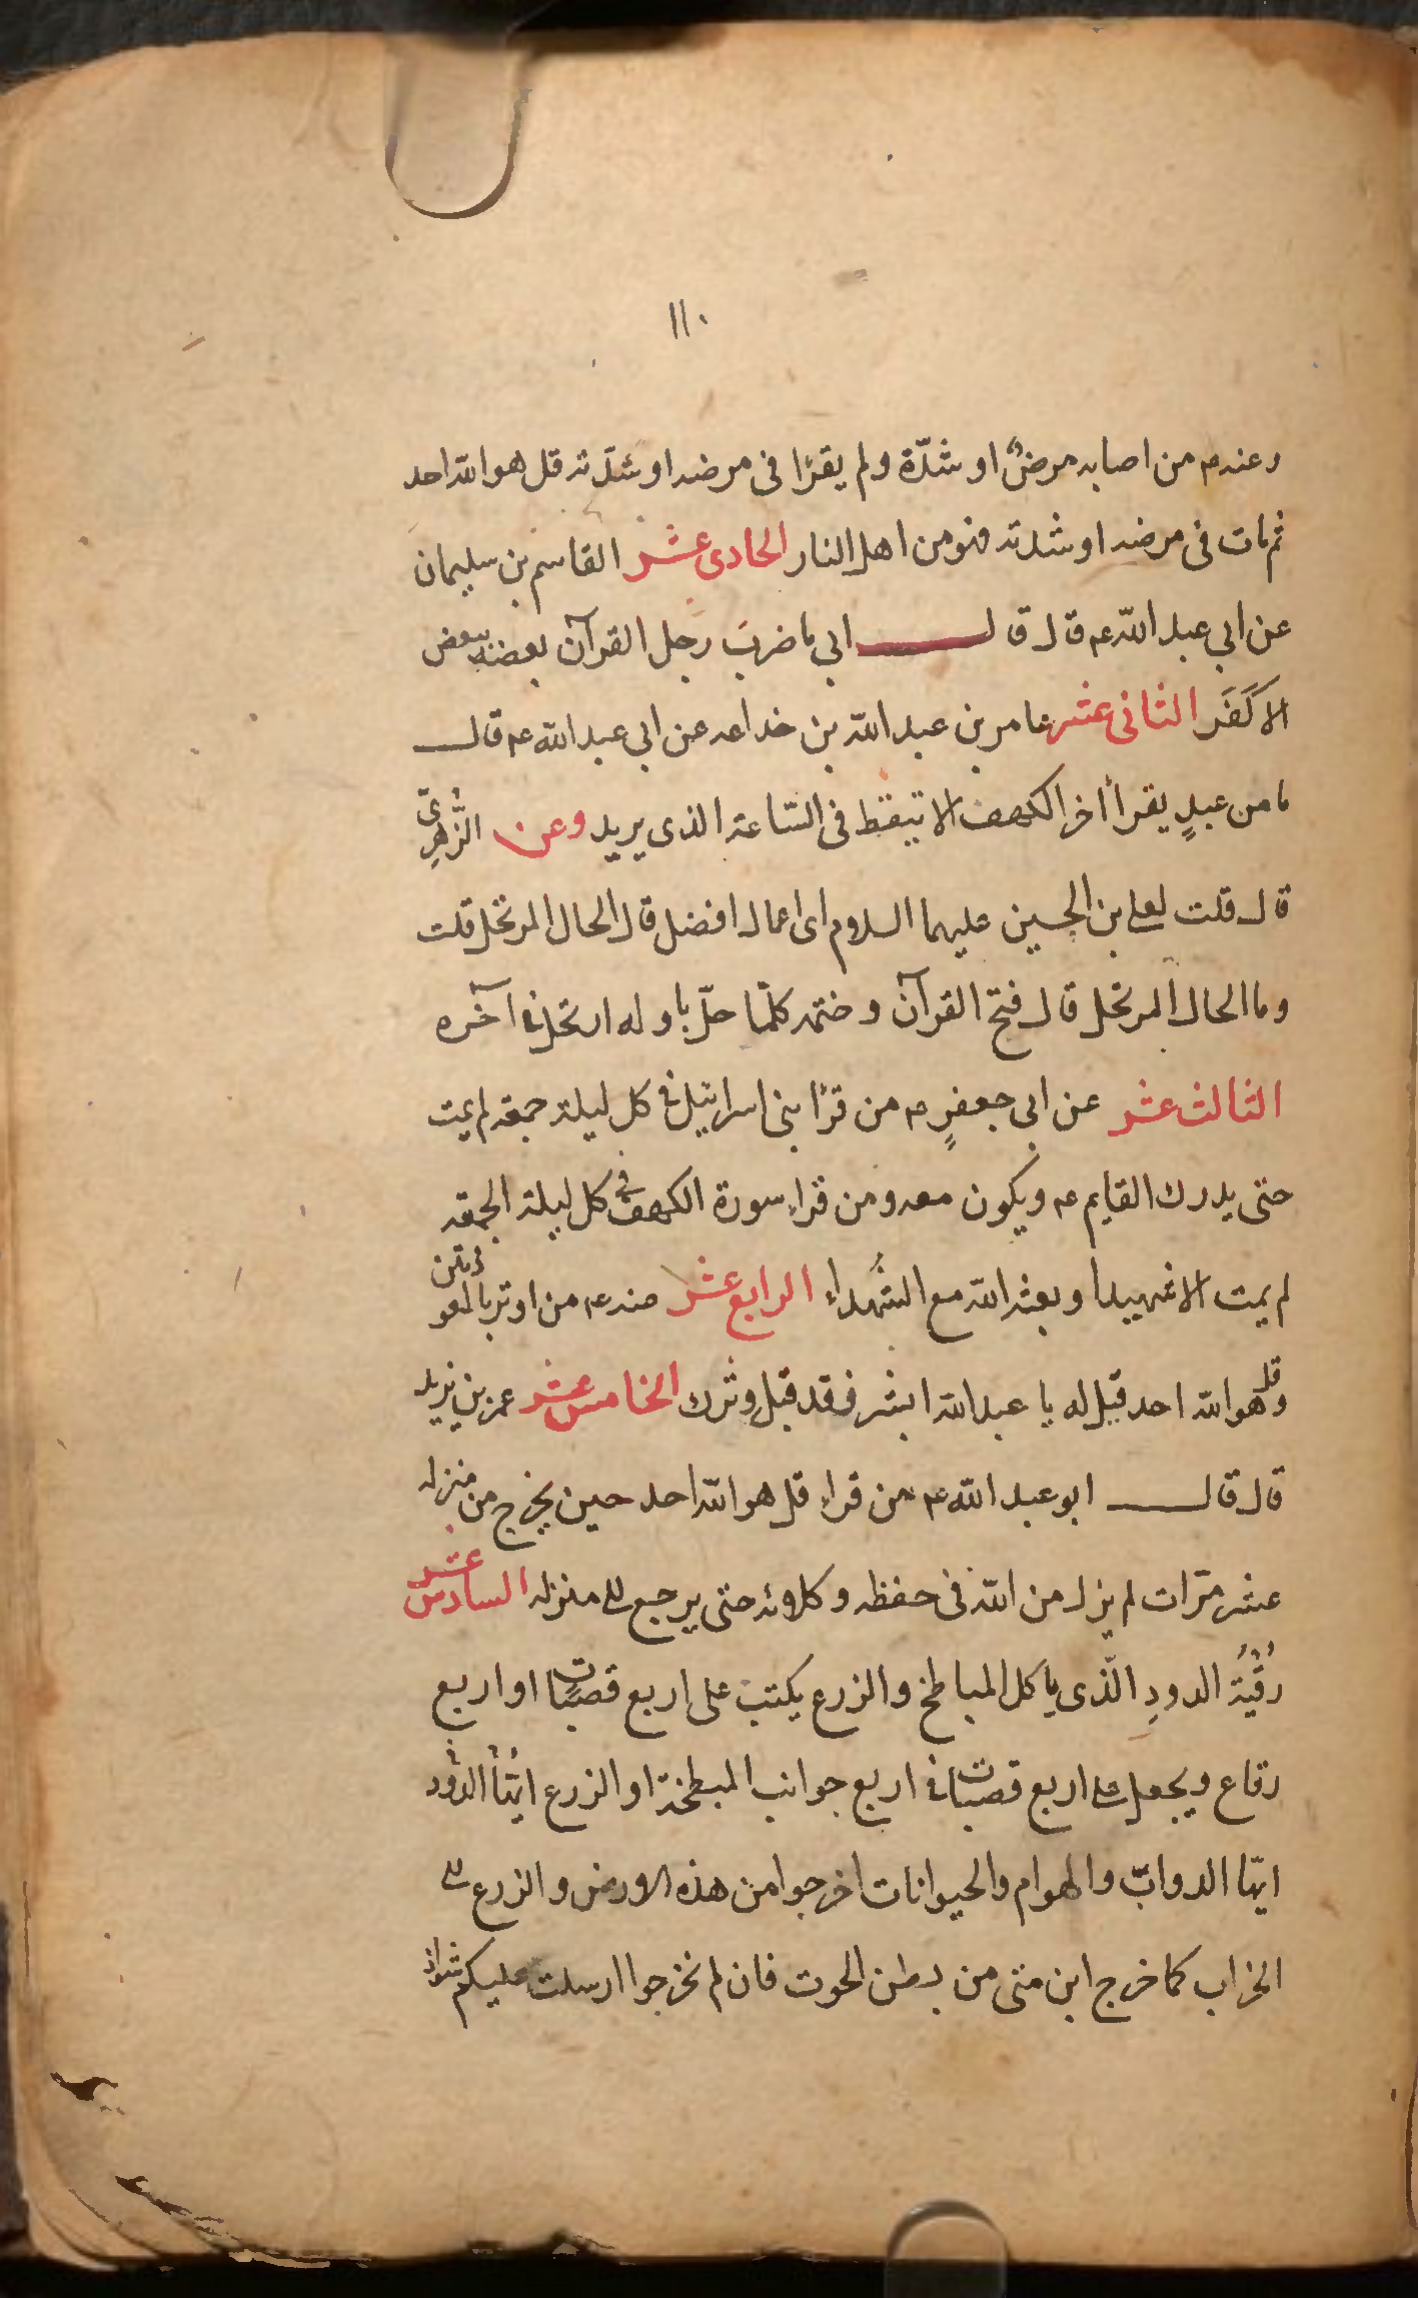 ١١٠
وعنه ع من اصابه مرضٌ او شدّة ولم يقرأ فى مرضه او شدّته قل هو الله احد
ثم مات فى مرضه او شدته فهو من اهل النار الحادى عشر القاسم بن سليمان
عن ابي عبد الله ع قال قال ابي ما ضربَ رجل القرآن بعضه ببعض
الا كَفَر الثانى عشر عامر بن عبد الله بن خداعه عن ابى عبد الله ع قال
ما من عبدٍ يقرأ اخر الكهف الا تيقظ فى السّاعة الذى يريد وعن الزُّهرِيّ
قال قلت لعلى بن الحسين عليهما السلام اى اعمال افضل قال الحال المرتحل قلت
وما الحال المرتحل قال فتح القرآن وختمه كلّما حلّ باوله ارتحل فى آخره
الثالث عشر عن ابى جعفرٍ ع من قرأ بنى اسرائيل فى كل ليلة جمعة لم يمت
حتى يدرك القايم ع ويكون معه ومن قراء سورة الكهف فى كل ليلة الجمعه
لم يمت الا شهيدا وبعثه الله مع الشُهداء الرابع عشر عنه ع من اوتر بالمعوذتين
وقل هو الله احد قيل له يا عبد الله ابشر فقد قبل وترك الخامس عشر عمر بن يزيد
قال قال ابو عبد الله ع من قراء قل هو الله احد حين يخرج من منزله
عشر مرّات لم يزل من الله فى حفظه وكلائه حتى يرجع الى منزله السادس عشر
رُقْيَةُ الدودِ الّذى ياكل المباطخ والزرع يكتب على اربع قصبات او اربع
رقاع ويجعل على اربع قصبات فى اربع جوانب المبطخة او الزرع ايّها الدّود
ايّها الدوابّ والهوام والحيوانات اخرجوا من هذه الارض والزرع الى
الخراب كما خرج ابن متى من بطن الحوت فان لم تخرجوا ارسلت عليكم شواظ